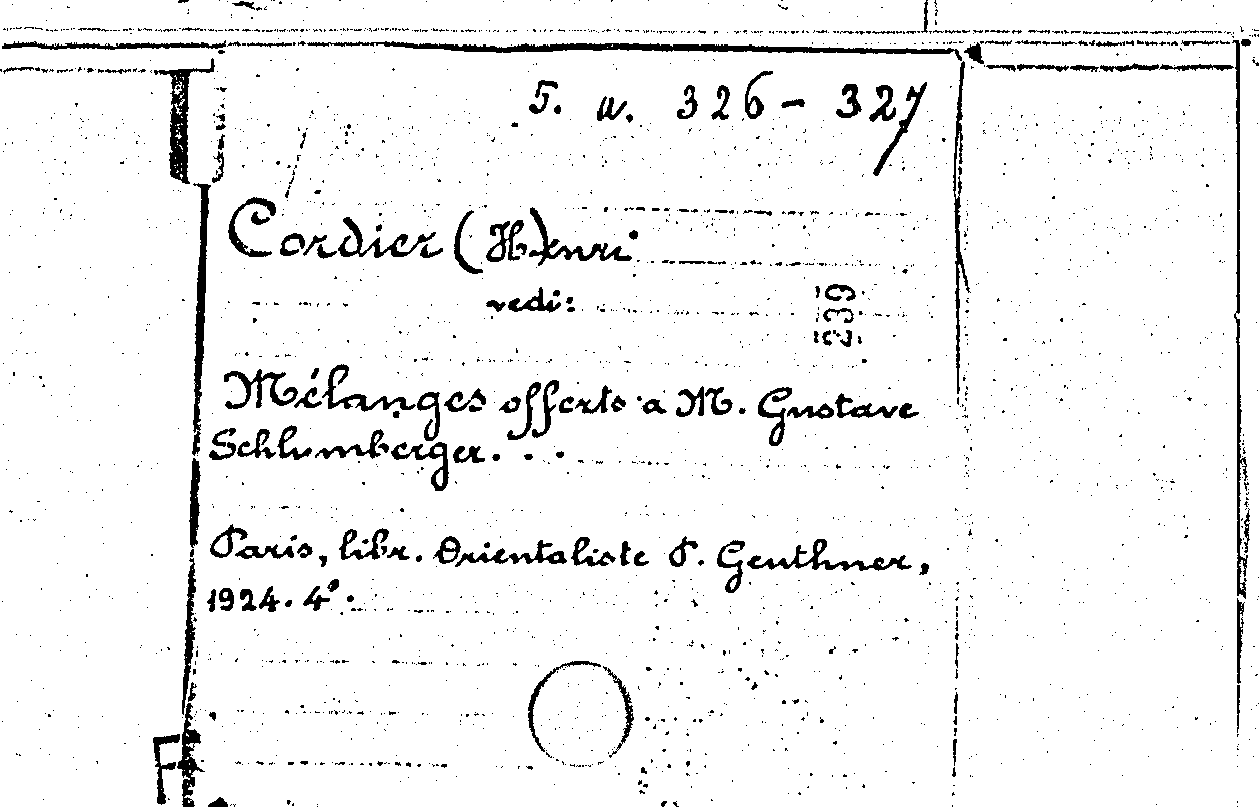 5. a. 326 - 327
Cordier (H)enri
vedi:
239
Mélanges offerts a M. Gustave
Schlumberger. . .
Paris, libr. Orientaliste P. Genthner,
1924. 4°.